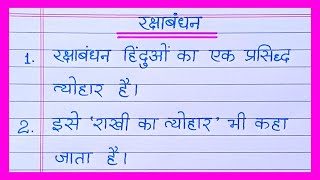 रक्षाबंधन
1. रक्षाबंधन हिंदुओं का एक प्रसिद्ध
त्योहार है।
2. इसे 'राखी का त्योहार' भी कहा
जाता है।